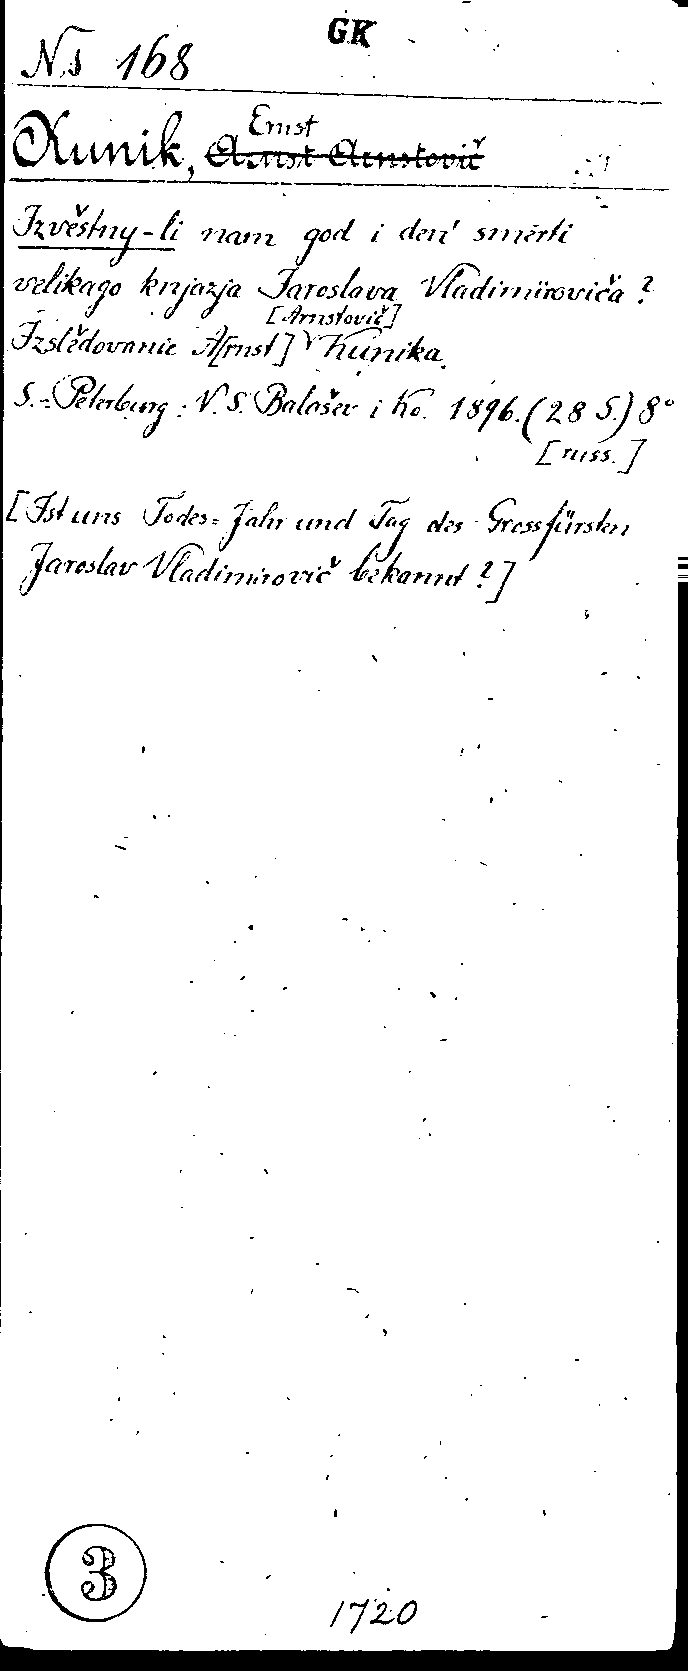 GK
Ns 168
Ernst
Kunik, Arnst Arnstovič
Izvěstny-li nam god i den' smerti
velikago knjazja Jaroslava Vladimiroviča?
[Arnstovič]
Izslědovanie A[rnst] Kunika.
S.=Peterburg: V. S. Balašev i Ko. 1896. (28 S.) 8°
[russ.]
[Ist uns Todes=Jahr und Tag des Grossfürsten
Jaroslav Vladimirovič bekannt?]
3
1720